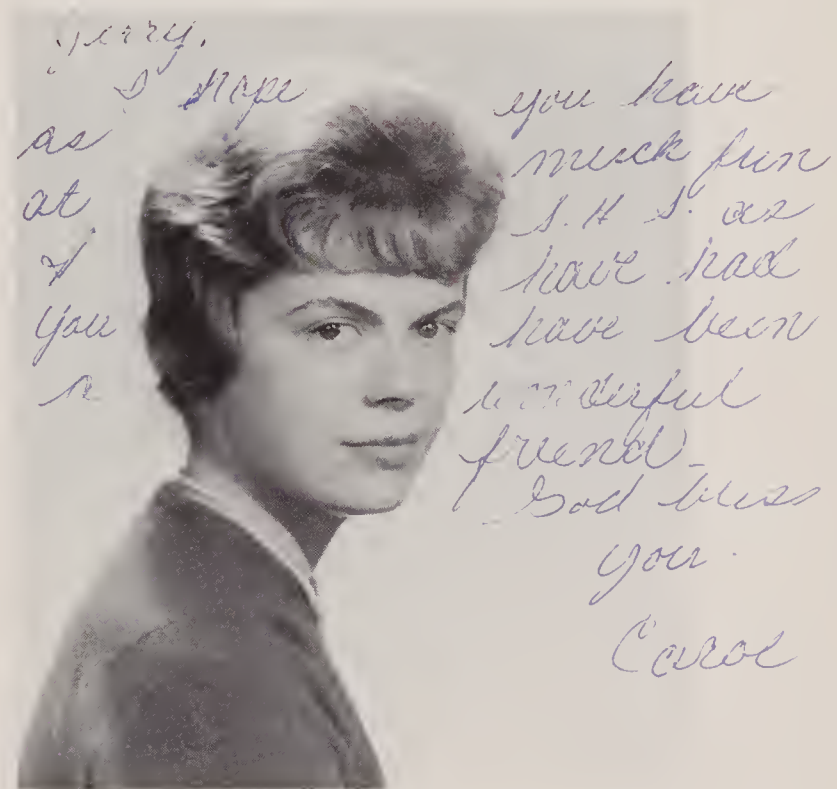 Jerry,
I hope you have
as much fun
at S.H.S. as
I have had
You have been
a wonderful
friend
God bless
you.
Carol